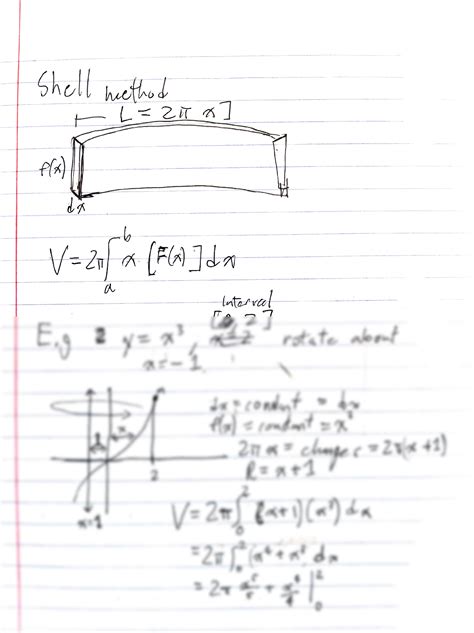 Shell method
L = 2π x ]
f(x)
dx
V = 2π ∫_a^b x [F(x)] dx
Interval
E.g y = x³, rotate about
x = -1
dx = constant = dx
f(x) = constant = x³
2πx = changes = 2π(x+1)
R = x+1
x
2
x=1
V = 2π ∫_0^2 (x+1)(x³) dx
= 2π ∫_0^2 (x⁴ + x³ dx
= 2π x⁵/5 + x⁴/4 |_0^2